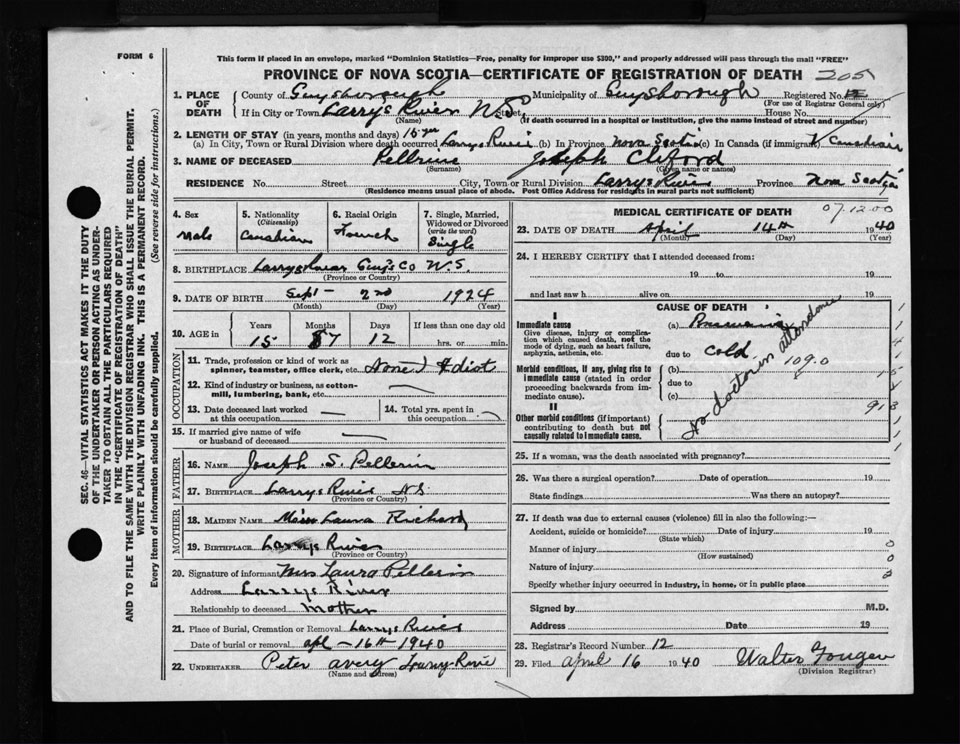 FORM 6
This form if placed in an envelope, marked "Dominion Statistics—Free, penalty for improper use $300," and properly addressed will pass through the mail "FREE"
PROVINCE OF NOVA SCOTIA—CERTIFICATE OF REGISTRATION OF DEATH 205
1. PLACE OF DEATH
County of Guysborough Municipality of Guysborough Registered No.
(For use of Registrar General only)
If in City or Town Larrys River N.S. Street, House No.
(Name) (If death occurred in a hospital or institution, give the name instead of street and number)
2. LENGTH OF STAY (in years, months and days) 15 yr
(a) In City, Town or Rural Division where death occurred Larrys River (b) In Province Nova Scotia (c) In Canada (if immigrant)
3. NAME OF DECEASED Pellrine Joseph Cliford
(Surname) (Given name or names)
RESIDENCE No. Street City, Town or Rural Division Larrys River Province Nova Scotia
(Residence means usual place of abode. Post Office Address for residents in rural parts not sufficient)
4. Sex
Male
5. Nationality
(Citizenship)
Canadian
6. Racial Origin
French
7. Single, Married, Widowed or Divorced
(write the word)
Single
8. BIRTHPLACE Larrys River Guys Co N.S.
(Province or Country)
9. DATE OF BIRTH Sept 2nd 1924
(Month) (Day) (Year)
10. AGE in
Years Months Days If less than one day old
15 7 12 hrs. or min.
OCCUPATION
11. Trade, profession or kind of work as
spinner, teamster, office clerk, etc. None Idiot
12. Kind of industry or business, as cotton-
mill, lumbering, bank, etc.
13. Date deceased last worked
at this occupation
14. Total yrs. spent in
this occupation
15. If married give name of wife
or husband of deceased
FATHER
16. NAME Joseph S. Pellerin
17. BIRTHPLACE Larrys River N S
(Province or Country)
MOTHER
18. MAIDEN NAME Miss Laura Richard
19. BIRTHPLACE Larrys River
(Province or Country)
20. Signature of informant Mrs Laura Pellerin
Address Larrys River
Relationship to deceased Mother
21. Place of Burial, Cremation or Removal Larrys River
Date of burial or removal apl - 16th 1940
22. UNDERTAKER Peter avery Larry River
(Name and address)
MEDICAL CERTIFICATE OF DEATH 07.12.00
23. DATE OF DEATH April 14th 1940
(Month) (Day) (Year)
24. I HEREBY CERTIFY that I attended deceased from:
19 to 19
and last saw h alive on 19
CAUSE OF DEATH
I
Immediate cause
Give disease, injury or complica-
tion which caused death, not the
mode of dying, such as heart failure,
asphyxia, asthenia, etc.
(a) Pneumonia
due to cold
Morbid conditions, if any, giving rise to
immediate cause (stated in order
proceeding backwards from im-
mediate cause).
(b) 109.0
due to
(c)
No doctor in attendance
II
Other morbid conditions (if important)
contributing to death but not
causally related to immediate cause.
25. If a woman, was the death associated with pregnancy?
26. Was there a surgical operation? Date of operation 19
State findings Was there an autopsy?
27. If death was due to external causes (violence) fill in also the following:—
Accident, suicide or homicide? Date of injury 19
(State which)
Manner of injury
(How sustained)
Nature of injury
Specify whether injury occurred in industry, in home, or in public place
Signed by M.D.
Address Date 19
28. Registrar's Record Number 12
29. Filed April 16 1940 Walter Fougere
(Division Registrar)
SEC. 46—VITAL STATISTICS ACT MAKES IT THE DUTY
OF THE UNDERTAKER OR PERSON ACTING AS UNDER-
TAKER TO OBTAIN ALL THE PARTICULARS REQUIRED
IN THE "CERTIFICATE OF REGISTRATION OF DEATH"
AND TO FILE THE SAME WITH THE DIVISION REGISTRAR WHO SHALL ISSUE THE BURIAL PERMIT.
WRITE PLAINLY WITH UNFADING INK. THIS IS A PERMANENT RECORD.
Every item of information should be carefully supplied. (See reverse side for instructions.)